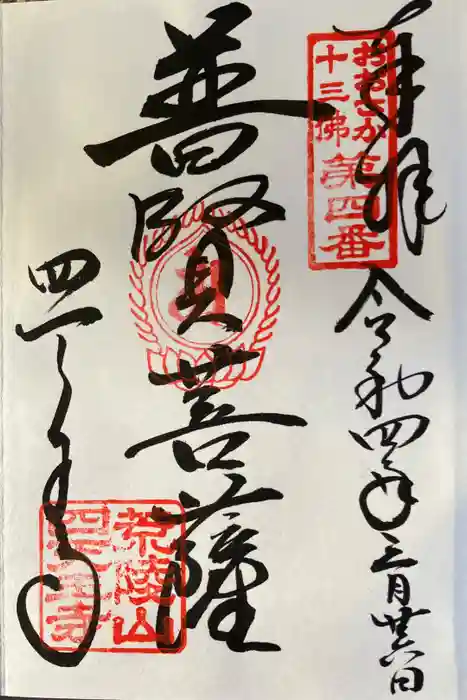 奉拝
おおさか
十三佛
第四番
令和四年三月廿六日
普賢菩薩
四天王寺
荒陵山
四天王寺